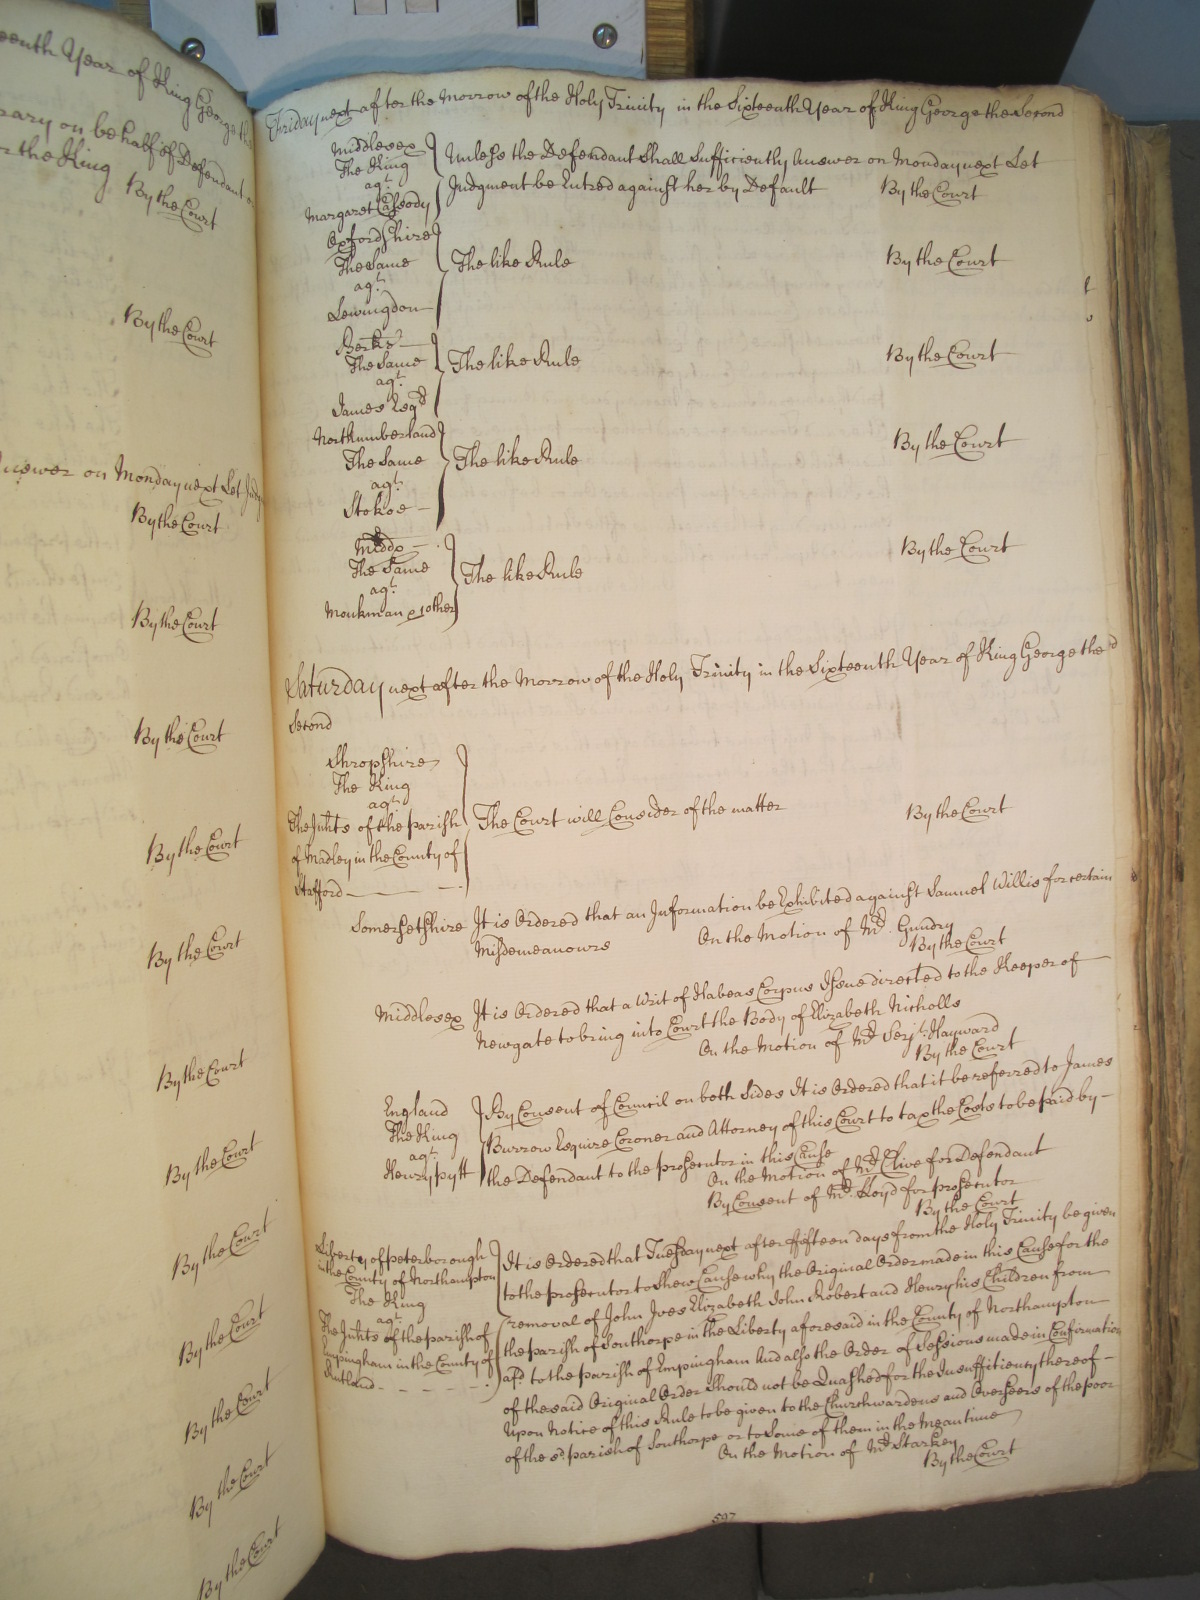 eenth Year of King George th
rary on behalf of Defendant
or the King
By the Court
By the Court
Answer on Monday next Let Judg
By the Court
By the Court
By the Court
By the Court
By the Court
By the Court
By the Court
By the Court
By the Court
By the Court
By the Court
By the Court
Friday next after the Morrow of the Holy Trinity in the Sixteenth Year of King George the Second
Middlesex
The King
agt.
Margaret Cassody
Unless the Defendant Shall Sufficiently Answer on Monday next Let
Judgment be Entred against her by Default By the Court
Oxfordshire
The Same
agt.
Lewingdon
The like Rule By the Court
Berks
The Same
agt.
James Esqr
The like Rule By the Court
Northumberland
The Same
agt.
Stokoe
The like Rule By the Court
Middx
The Same
agt.
Monkman & 1 other
The like Rule By the Court
Saturday next after the Morrow of the Holy Trinity in the Sixteenth Year of King George the
Second
Shropshire
The King
agt.
The Inhts of the parish
of Madley in the County of
Stafford
The Court will Consider of the matter By the Court
Somersetshire It is Ordered that an Information be Exhibited against Samuel Willis for certain
Misdemeanours On the Motion of Mr. Gundry
By the Court
Middlesex It is Ordered that a Writ of Habeas Corpus Issue directed to the Keeper of
Newgate to bring into Court the Body of Elizabeth Nicholls
On the Motion of Mr Serjt. Hayward
By the Court
England
The King
agt.
Henry pytt
By Consent of Council on both Sides It is Ordered that it be referred to James
Burrow Esquire Coroner and Attorney of this Court to tax the Costs to be paid by
the Defendant to the prosecutor in this Cause
On the Motion of Mr Clive for Defendant
By Consent of Mr. Lloyd for prosecutor
By the Court
Liberty of peterborough
in the County of Northampton
The King
agt.
The Inhts of the parish of
Empingham in the County of
Rutland
It is Ordered that Tuesday next after fifteen days from the Holy Trinity be given
to the prosecutor to Shew Cause why the Original Order made in this Cause for the
removal of John Ives Elizabeth John Robert and Henry his Children from
the parish of Southorpe in the Liberty aforesaid in the County of Northampton
afd. to the parish of Empingham And also the Order of Sessions made in Confirmation
of the said Original Order Should not be Quashed for the Insufficiency thereof
Upon Notice of this Rule to be given to the Churchwardens and Overseers of the poor
of the sd. parish of Southorpe or to Some of them in the Mean time
On the Motion of Mr Starkey
By the Court
597